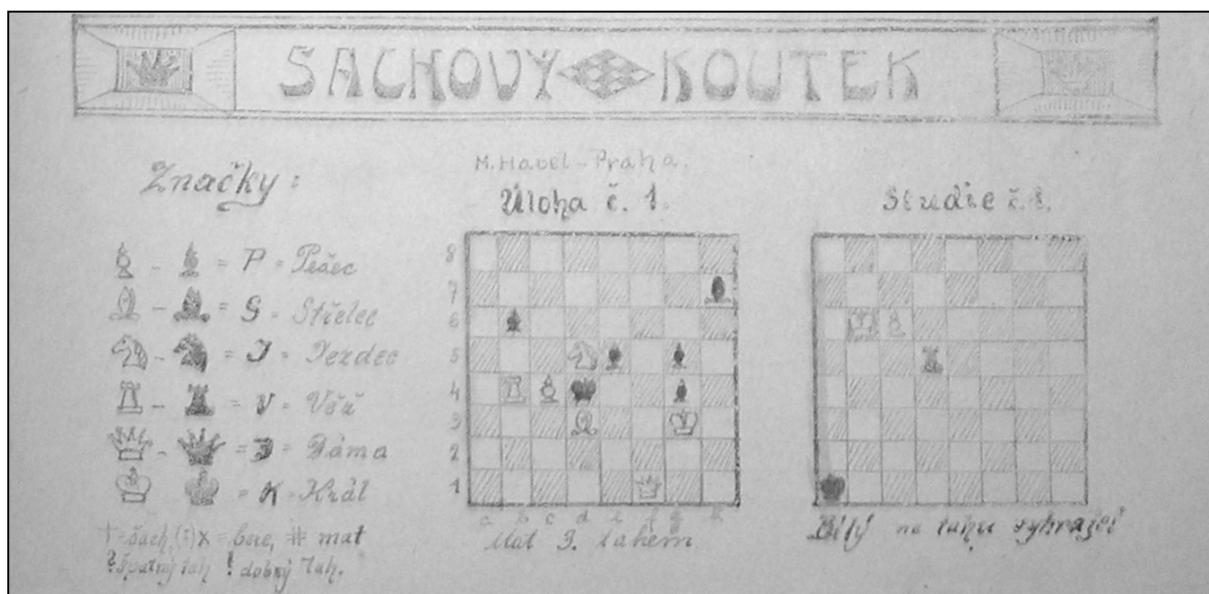 SACHOVÝ KOUTEK
Značky:
- = P = Pěšec
- = S = Střelec
- = J = Jezdec
- = V = Věž
- = D = Dáma
= K = Král
+ = šach, (:) x = bere, # = mat
? špatný tah ! dobrý tah.
M. Havel - Praha.
Úloha č. 1.
8
7
6
5
4
3
2
1
a b c d e f g h
Mat 3. tahem
Studie č. 1.
Bílý na tahu vyhraje